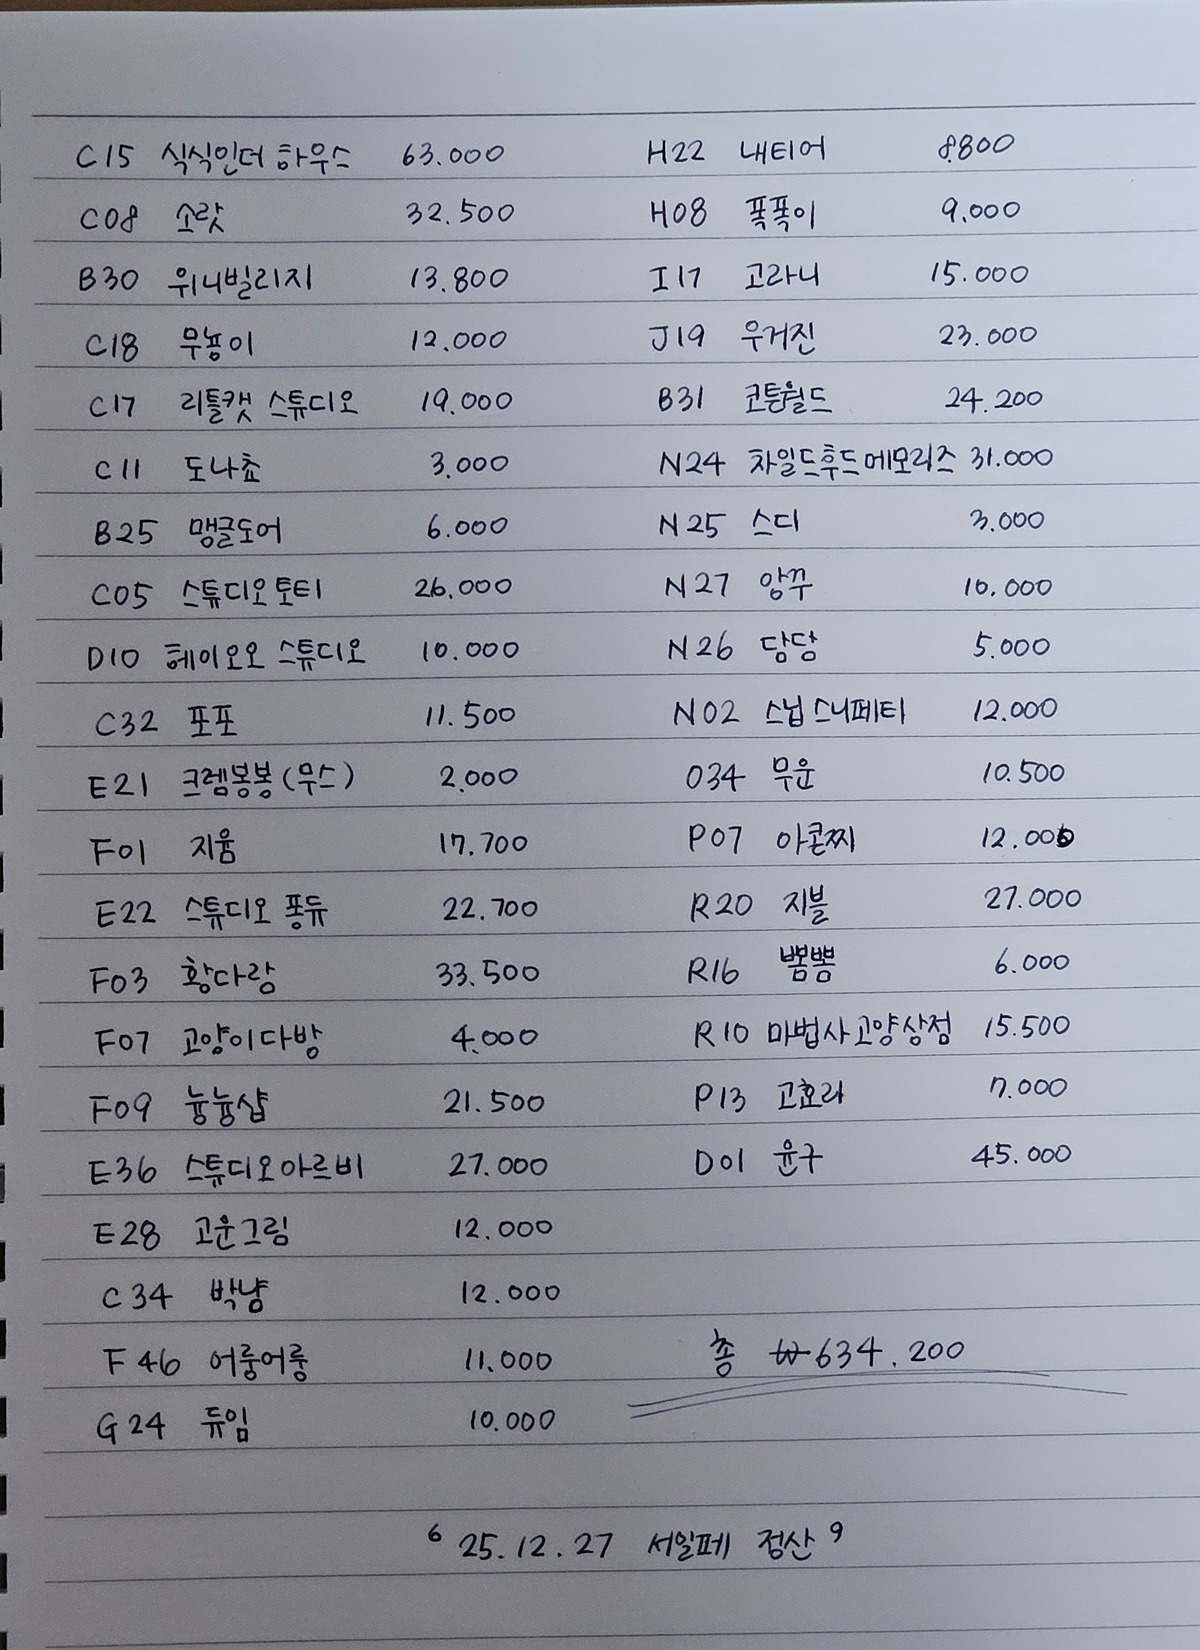 C15 식식인더하우스 63.000
C08 소랏 32.500
B30 위니빌리지 13.800
C18 무뇽이 12.000
C17 리틀캣 스튜디오 19.000
C11 도나쵸 3.000
B25 맹글도어 6.000
C05 스튜디오토티 26.000
D10 헤이오오 스튜디오 10.000
C32 포포 11.500
E21 크렘봉봉(무스) 2.000
F01 지윰 17.700
E22 스튜디오 퐁듀 22.700
F03 황다랑 33.500
F07 고양이다방 4.000
F09 늉늉샵 21.500
E36 스튜디오아르비 27.000
E28 고운그림 12.000
C34 박냥 12.000
F46 어룽어룽 11.000
G24 듀임 10.000
H22 내티어 8.800
H08 푹푹이 9.000
I17 고라니 15.000
J19 우거진 23.000
B31 코튼월드 24.200
N24 차일드후드메모리즈 31.000
N25 스디 3.000
N27 앙꾸 10.000
N26 담담 5.000
N02 스닙스니페티 12.000
O34 무운 10.500
P07 아콘찌 12.000
R20 지블 27.000
R16 뽐뽐 6.000
R10 마법사고양상점 15.500
P13 고효라 7.000
D01 윤구 45.000
총 ₩634.200
"25.12.27 서일페 정산"